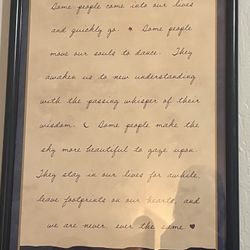 Some people come into our lives
and quickly go. Some people
move our souls to dance. They
awaken us to new understanding
with the passing whisper of their
wisdom. Some people make the
sky more beautiful to gaze upon.
They stay in our lives for awhile,
leave footprints on our hearts, and
we are never, ever the same